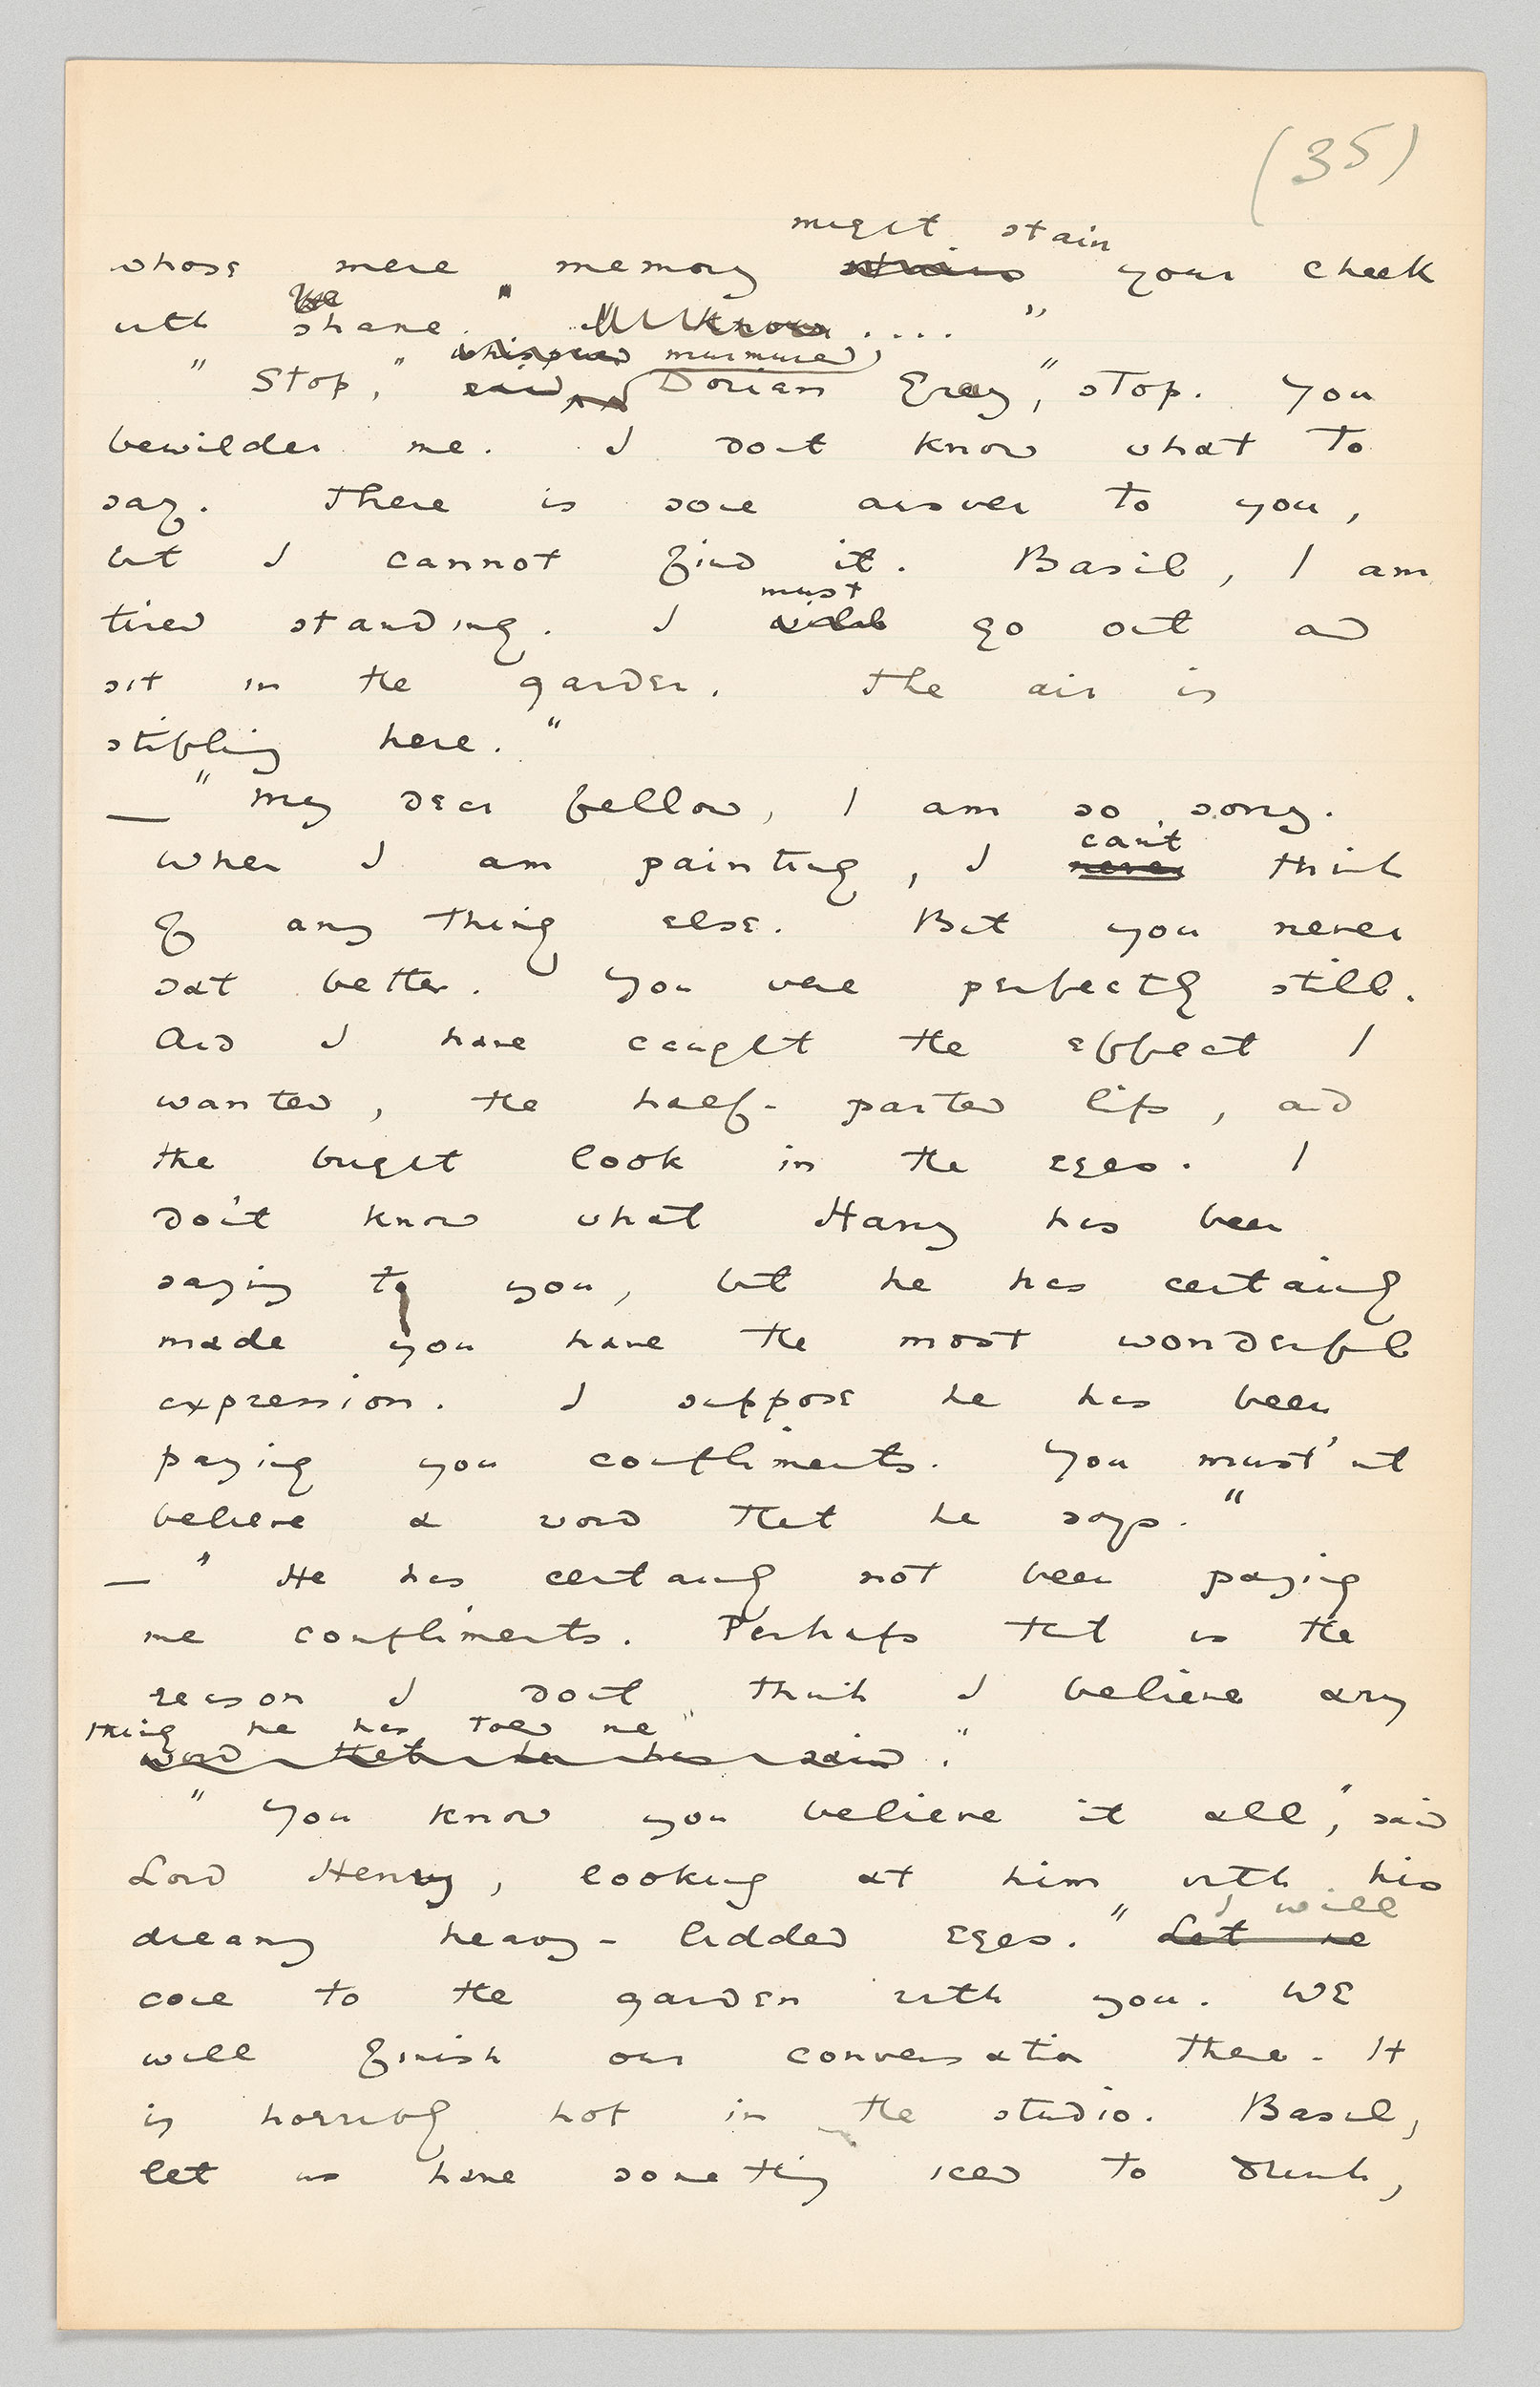 (35)
might stain
whose mere memory stains your cheek
with shame." ....."
whispered murmured
"Stop," said Dorian Gray, "stop. You
bewilder me. I dont know what to
say. There is some answer to you,
but I cannot find it. Basil, I am
must
tired standing. I will go out and
sit in the garden. The air is
stifling here."
— "My dear fellow, I am so sorry.
can't
When I am painting, I never think
of any thing else. But you never
sat better. You were perfectly still.
And I have caught the effect I
wanted, the half-parted lips, and
the bright look in the eyes. I
don't know what Harry has been
saying to you, but he has certainly
made you have the most wonderful
expression. I suppose he has been
paying you compliments. You must'nt
believe a word that he says."
— "He has certainly not been paying
me compliments. Perhaps that is the
reason I dont think I believe any
thing he has told me"
word that he has said."
"You know you believe it all," said
Lord Henry, looking at him with his
I will
dreamy heavy-lidded eyes. "Let me
come to the garden with you. We
will finish our conversation there. It
is horribly hot in the studio. Basil,
let us have something iced to drink,